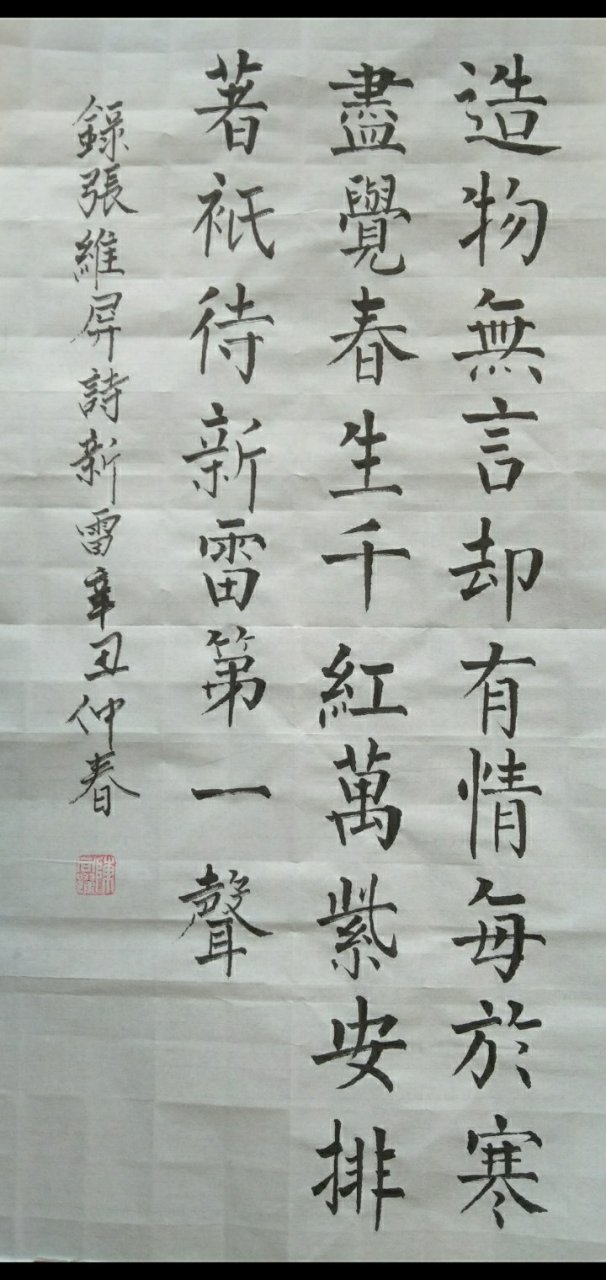 造物無言却有情每於寒
盡覺春生千紅萬紫安排
著祇待新雷第一聲
錄張維屏詩新雷辛丑仲春